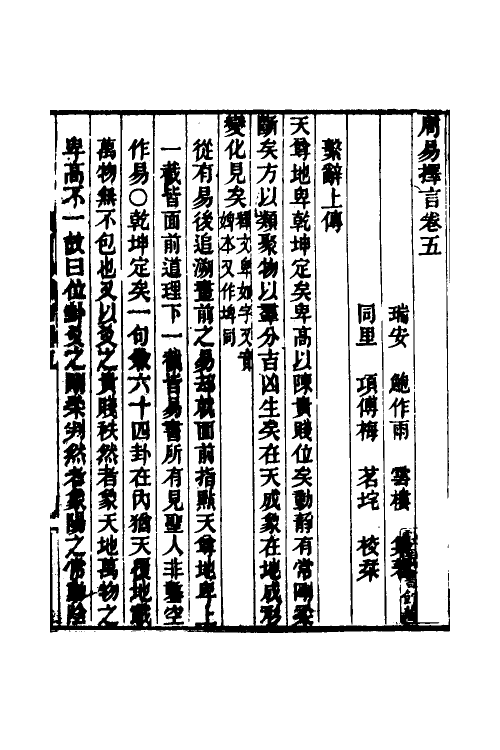 周易擇言卷五
瑞安 鮑作雨 雲樓
同里 項傅梅 茗垞 校栞
繫辭上傳
天尊地卑乾坤定矣卑高以陳貴賤位矣動靜有常剛柔
斷矣方以類聚物以羣分吉凶生矣在天成象在地成形
變化見矣釋文卑如字又音
婢本又作埤同
從有易後追溯畫前之易却就面前指點天尊地卑上
一截皆面前道理下一截皆易書所有見聖人非鑿空
作易○乾坤定矣一句六十四卦在內猶天覆地載
萬物無不包也爻以之貴賤秩然者象天地萬物之
卑高不一故曰位卦爻之剛柔判然者象陽之常動陰